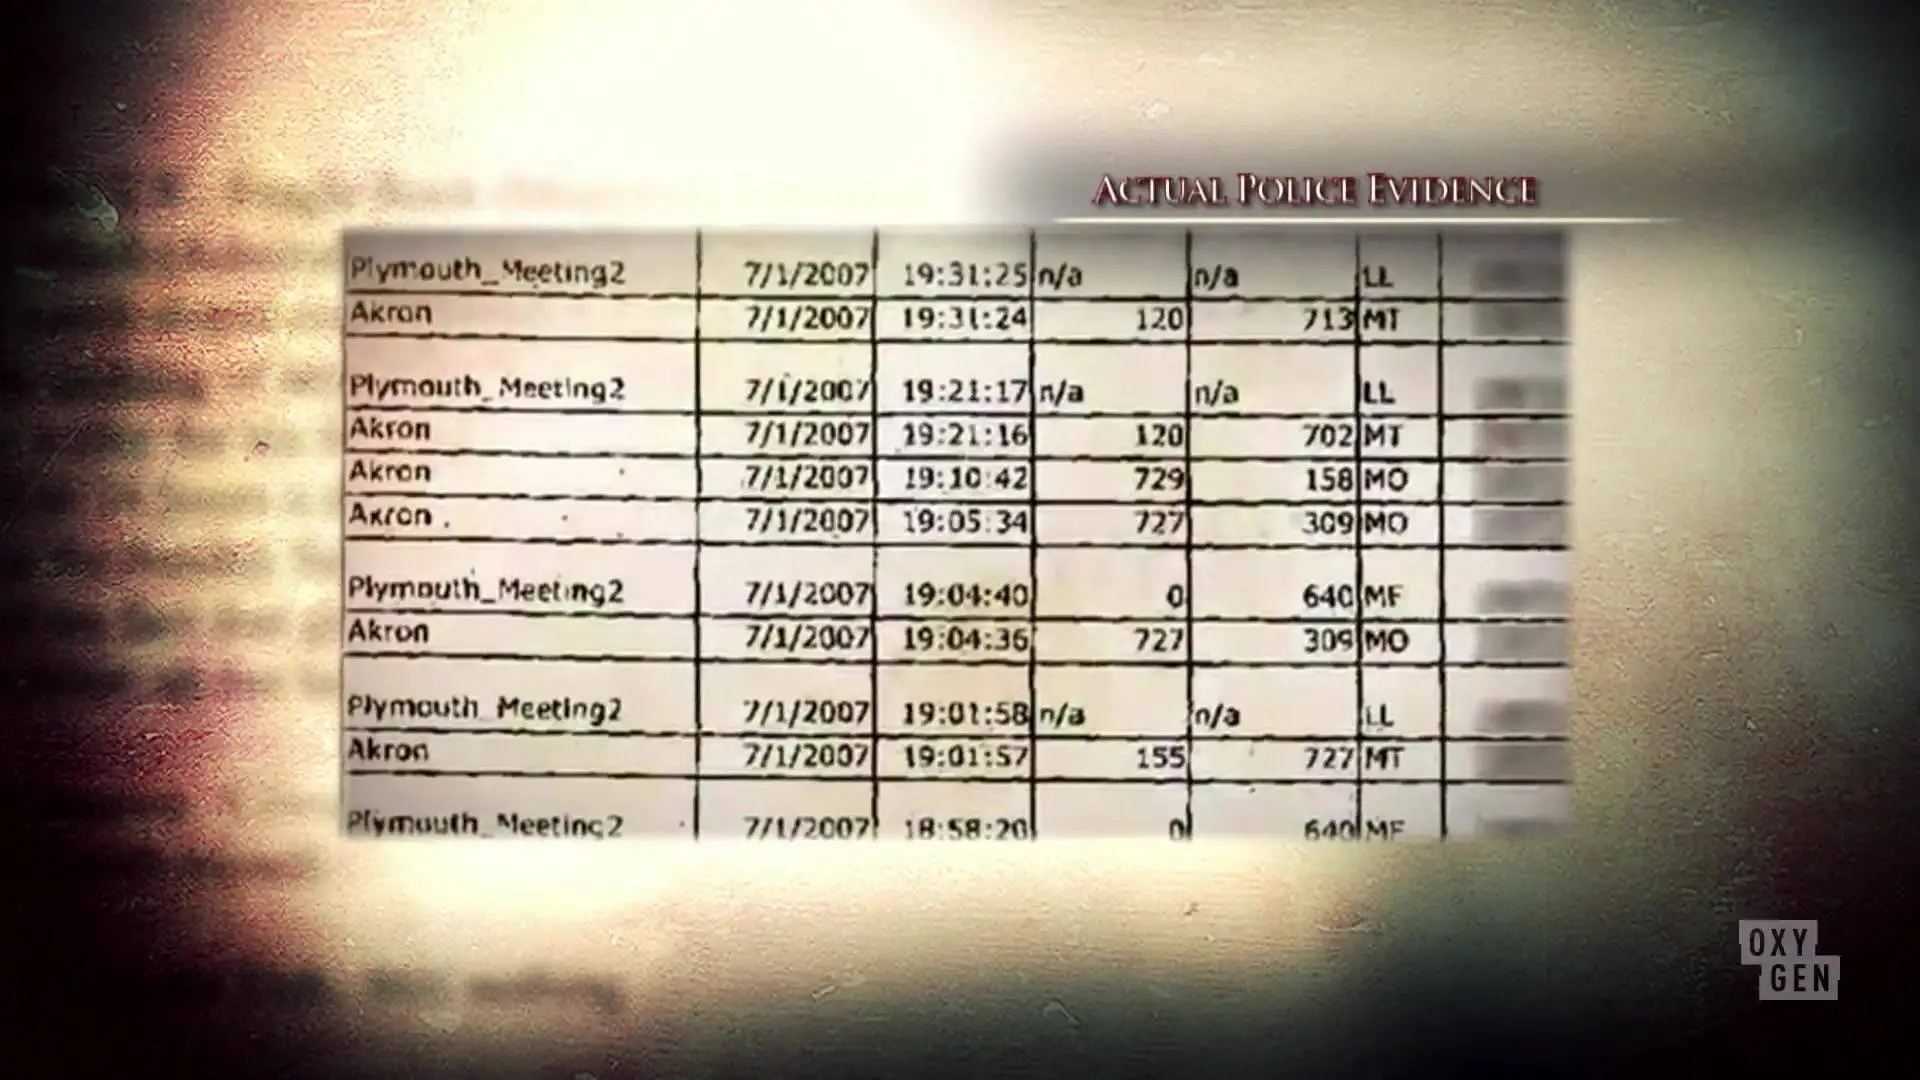 ACTUAL POLICE EVIDENCE
Plymouth_Meeting2 7/1/2007 19:31:25 n/a n/a LL
Akron 7/1/2007 19:31:24 120 713 MT
Plymouth_Meeting2 7/1/2007 19:21:17 n/a n/a LL
Akron 7/1/2007 19:21:16 120 702 MT
Akron 7/1/2007 19:10:42 729 158 MO
Akron 7/1/2007 19:05:34 727 309 MO
Plymouth_Meeting2 7/1/2007 19:04:40 0 640 MF
Akron 7/1/2007 19:04:36 727 309 MO
Plymouth_Meeting2 7/1/2007 19:01:58 n/a n/a LL
Akron 7/1/2007 19:01:57 155 727 MT
Plymouth_Meeting2 7/1/2007 18:58:20 0 640 MF
OXY
GEN